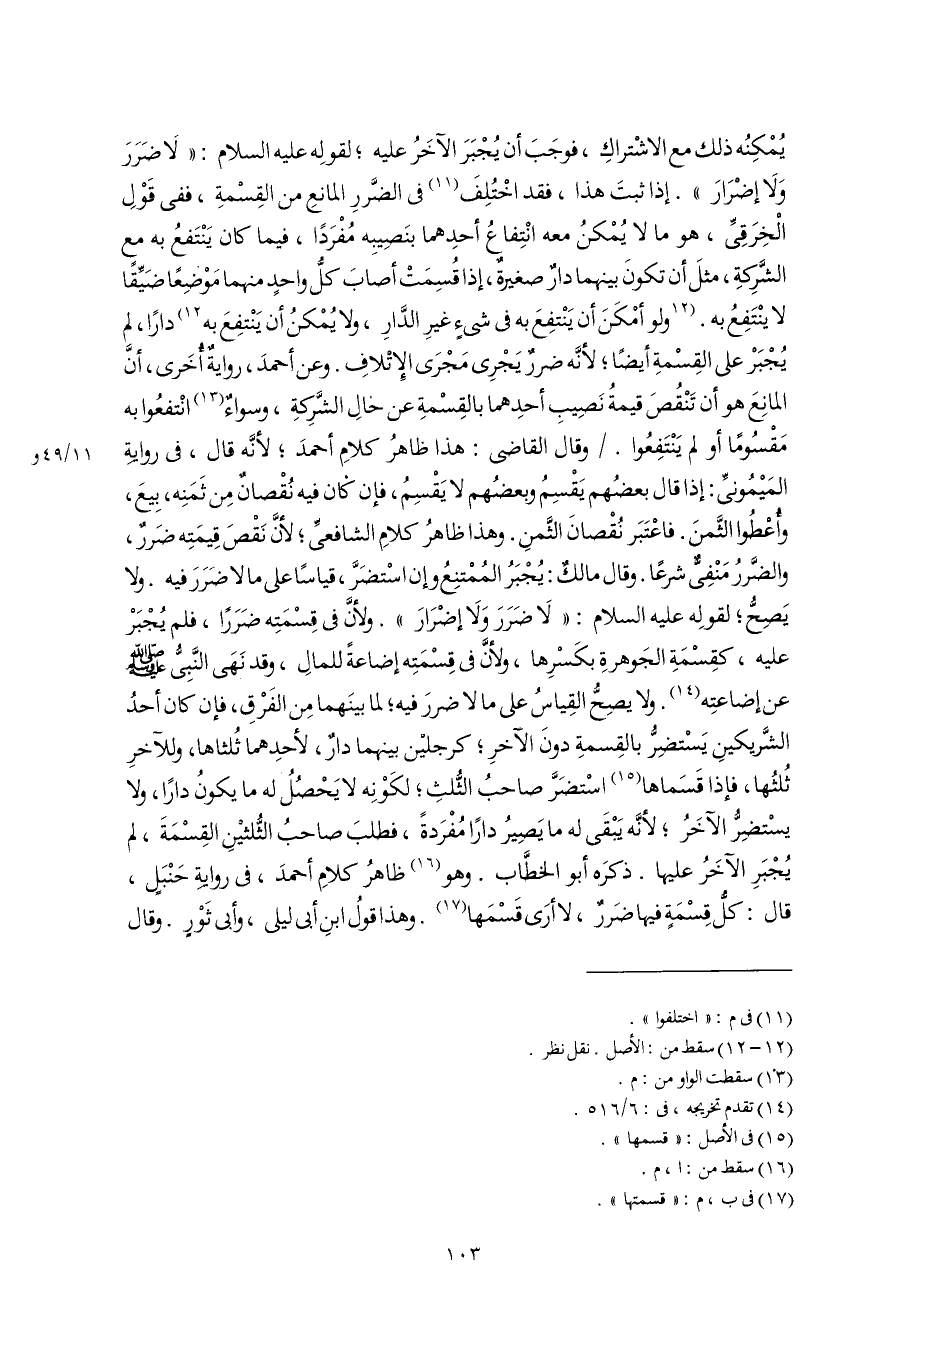 يُمْكِنُه ذلك مع الاشْتراكِ ، فوجَبَ أن يُجْبَرَ الآخَرُ عليه ؛ لقولِه عليه السلام : « لَا ضَرَرَ
وَلَا إضْرَارَ » . إذا ثبتَ هذا ، فقد اخْتُلِفَ(١١) فى الضَّررِ المانعِ من القِسمةِ ، ففى قَوْلِ
الْخِرَقِىِّ ، هو ما لا يُمْكنُ معه انْتِفاعُ أحدِهما بنَصِيبِه مُفْرَدًا ، فيما كان يَنْتَفعُ به مع
الشَّرِكةِ ، مثلَ أن تكونَ بينهما دارٌ صغيرةٌ ، إذا قُسِمَتْ أصابَ كلُّ واحدٍ منهما مَوْضِعًا ضَيِّقًا
لا يَنْتَفِعُ به . (١٢ولو أمْكَنَ أن يَنْتَفِعَ به فى شىءٍ غيرِ الدَّارِ ، ولا يُمْكنُ أن يَنْتفِعَ به١٢) دارًا ، لم
يُجْبَرْ على القِسْمةِ أيضًا ؛ لأنَّه ضررٌ يَجْرِى مَجْرَى الإِتْلافِ . وعن أحمدَ ، روايةٌ أُخرَى ، أنَّ
المانِعَ هو أن تَنْقُصَ قيمةُ نَصِيبِ أحدِهما بالقِسْمةِ عن حالِ الشَّرِكةِ ، وسواءٌ(١٣) انْتفعُوا به
مَقْسُومًا أو لم يَنْتَفِعُوا . / وقال القاضى : هذا ظاهرُ كلامِ أحمدَ ؛ لأنَّه قال ، فى روايةِ
١١/٤٩و
المَيْمُونىِّ : إذا قال بعضُهم يَقْسِمُ وبعضُهم لا يَقْسِمُ ، فإن كان فيه نُقْصانٌ مِن ثَمَنِه ، بِيعَ ،
وأُعْطُوا الثَّمنَ . فاعْتَبَر نُقْصانَ الثَّمنِ . وهذا ظاهرُ كلامِ الشافعىِّ ؛ لأنَّ نَقْصَ قِيمَتِه ضررٌ ،
والضَّررُ مَنْفِىٌّ شرعًا . وقال مالكٌ : يُجْبَرُ المُمْتَنِعُ وإن اسْتضَرَّ ، قياسًا على ما لا ضَرَرَ فيه . ولا
يَصِحُّ ؛ لقولِه عليه السلام : « لَا ضَرَرَ وَلَا إضْرَارَ » . ولأنَّ فى قِسْمَتِه ضَررًا ، فلم يُجْبَرْ
عليه ، كقِسْمَةِ الجَوهرةِ بكَسْرِها ، ولأنَّ فى قِسْمَتِه إضاعةً للمالِ ، وقد نَهَى النَّبِىُّ ﷺ
عن إضاعتِه(١٤) . ولا يصِحُّ القِياسُ على ما لا ضررَ فيه ؛ لما بينَهما مِن الفَرْقِ ، فإن كان أحدُ
الشَّريكينِ يَسْتضِرُّ بالقِسمةِ دونَ الآخرِ ؛ كرجليْن بينهما دارٌ ، لأحدِهما ثُلثاها ، وللآخرِ
ثُلثُها ، فإذا قَسَماها(١٥) اسْتضَرَّ صاحبُ الثُّلثِ ؛ لكَوْنِه لا يَحْصُلُ له ما يكونُ دارًا ، ولا
يسْتضِرُّ الآخَرُ ؛ لأنَّه يَبْقَى له ما يَصِيرُ دارًا مُفْرَدةً ، فطلبَ صاحبُ الثُّلثيْنِ القِسْمَةَ ، لم
يُجْبَرِ الآخَرُ عليها . ذكرَه أبو الخطَّاب . وهو(١٦) ظاهرُ كلامِ أحمدَ ، فى روايةِ حَنْبَلٍ ،
قال : كلُّ قِسْمَةٍ فيها ضَررٌ ، لا أرَى قَسْمَها(١٧) . وهذا قولُ ابنِ أبى ليلى ، وأبى ثَوْرٍ . وقال
(١١) فى م : « اختلفوا » .
(١٢-١٢) سقط من : الأصل . نقل نظر .
(١٣) سقطت الواو من : م .
(١٤) تقدم تخريجه ، فى : ٥١٦/٦ .
(١٥) فى الأصل : « قسمها » .
(١٦) سقط من : ا ، م .
(١٧) فى ب ، م : « قسمتها » .
١٠٣